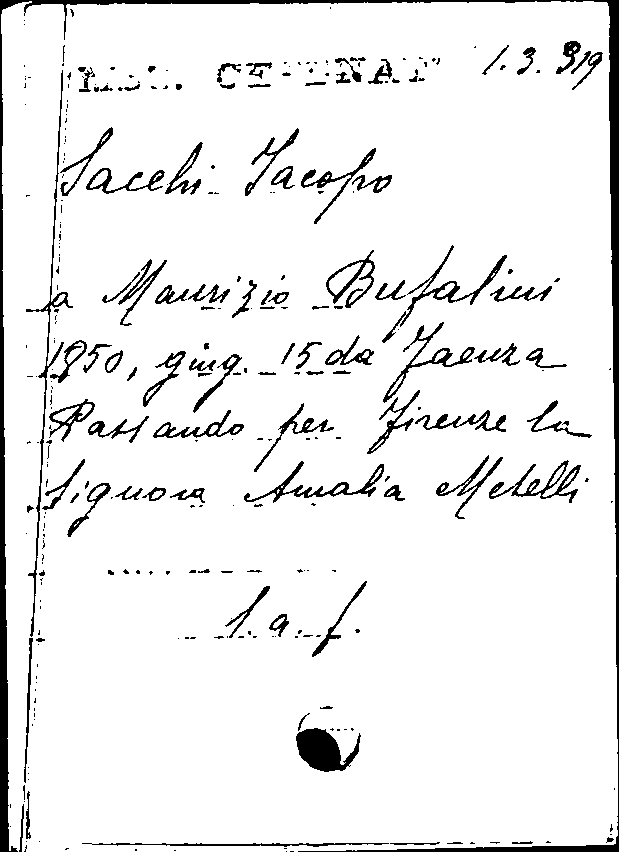 1.3.319
Sacchi Jacopo
a Maurizio Bufalini
1850, giug. 15 da Faenza
Passando per Firenze la
Signora Amalia Metelli
1. a. f.